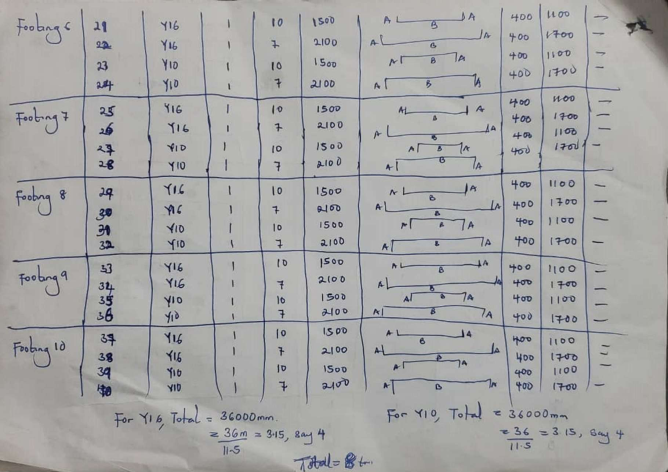 Footing 6 21 Y16 1 10 1500 A B A 400 1100 -
22 Y16 1 7 2100 A B A 400 1700 -
23 Y10 1 10 1500 A B A 400 1100 -
24 Y10 1 7 2100 A B A 400 1700 -
Footing 7 25 Y16 1 10 1500 A B A 400 1100 -
26 Y16 1 7 2100 A B A 400 1700 -
27 Y10 1 10 1500 A B A 400 1100 -
28 Y10 1 7 2100 A B A 400 1700 -
Footing 8 29 Y16 1 10 1500 A B A 400 1100 -
30 Y16 1 7 2100 A B A 400 1700 -
31 Y10 1 10 1500 A B A 400 1100 -
32 Y10 1 7 2100 A B A 400 1700 -
Footing 9 33 Y16 1 10 1500 A B A 400 1100 -
34 Y16 1 7 2100 A B A 400 1700 -
35 Y10 1 10 1500 A B A 400 1100 -
36 Y10 1 7 2100 A B A 400 1700 -
Footing 10 37 Y16 1 10 1500 A B A 400 1100 -
38 Y16 1 7 2100 A B A 400 1700 -
39 Y10 1 10 1500 A B A 400 1100 -
40 Y10 1 7 2100 A B A 400 1700 -
For Y16, Total = 36000mm. For Y10, Total = 36000mm
= 36m = 3.15, Say 4 = 36 = 3.15, Say 4
11.5 11.5
Total = 8